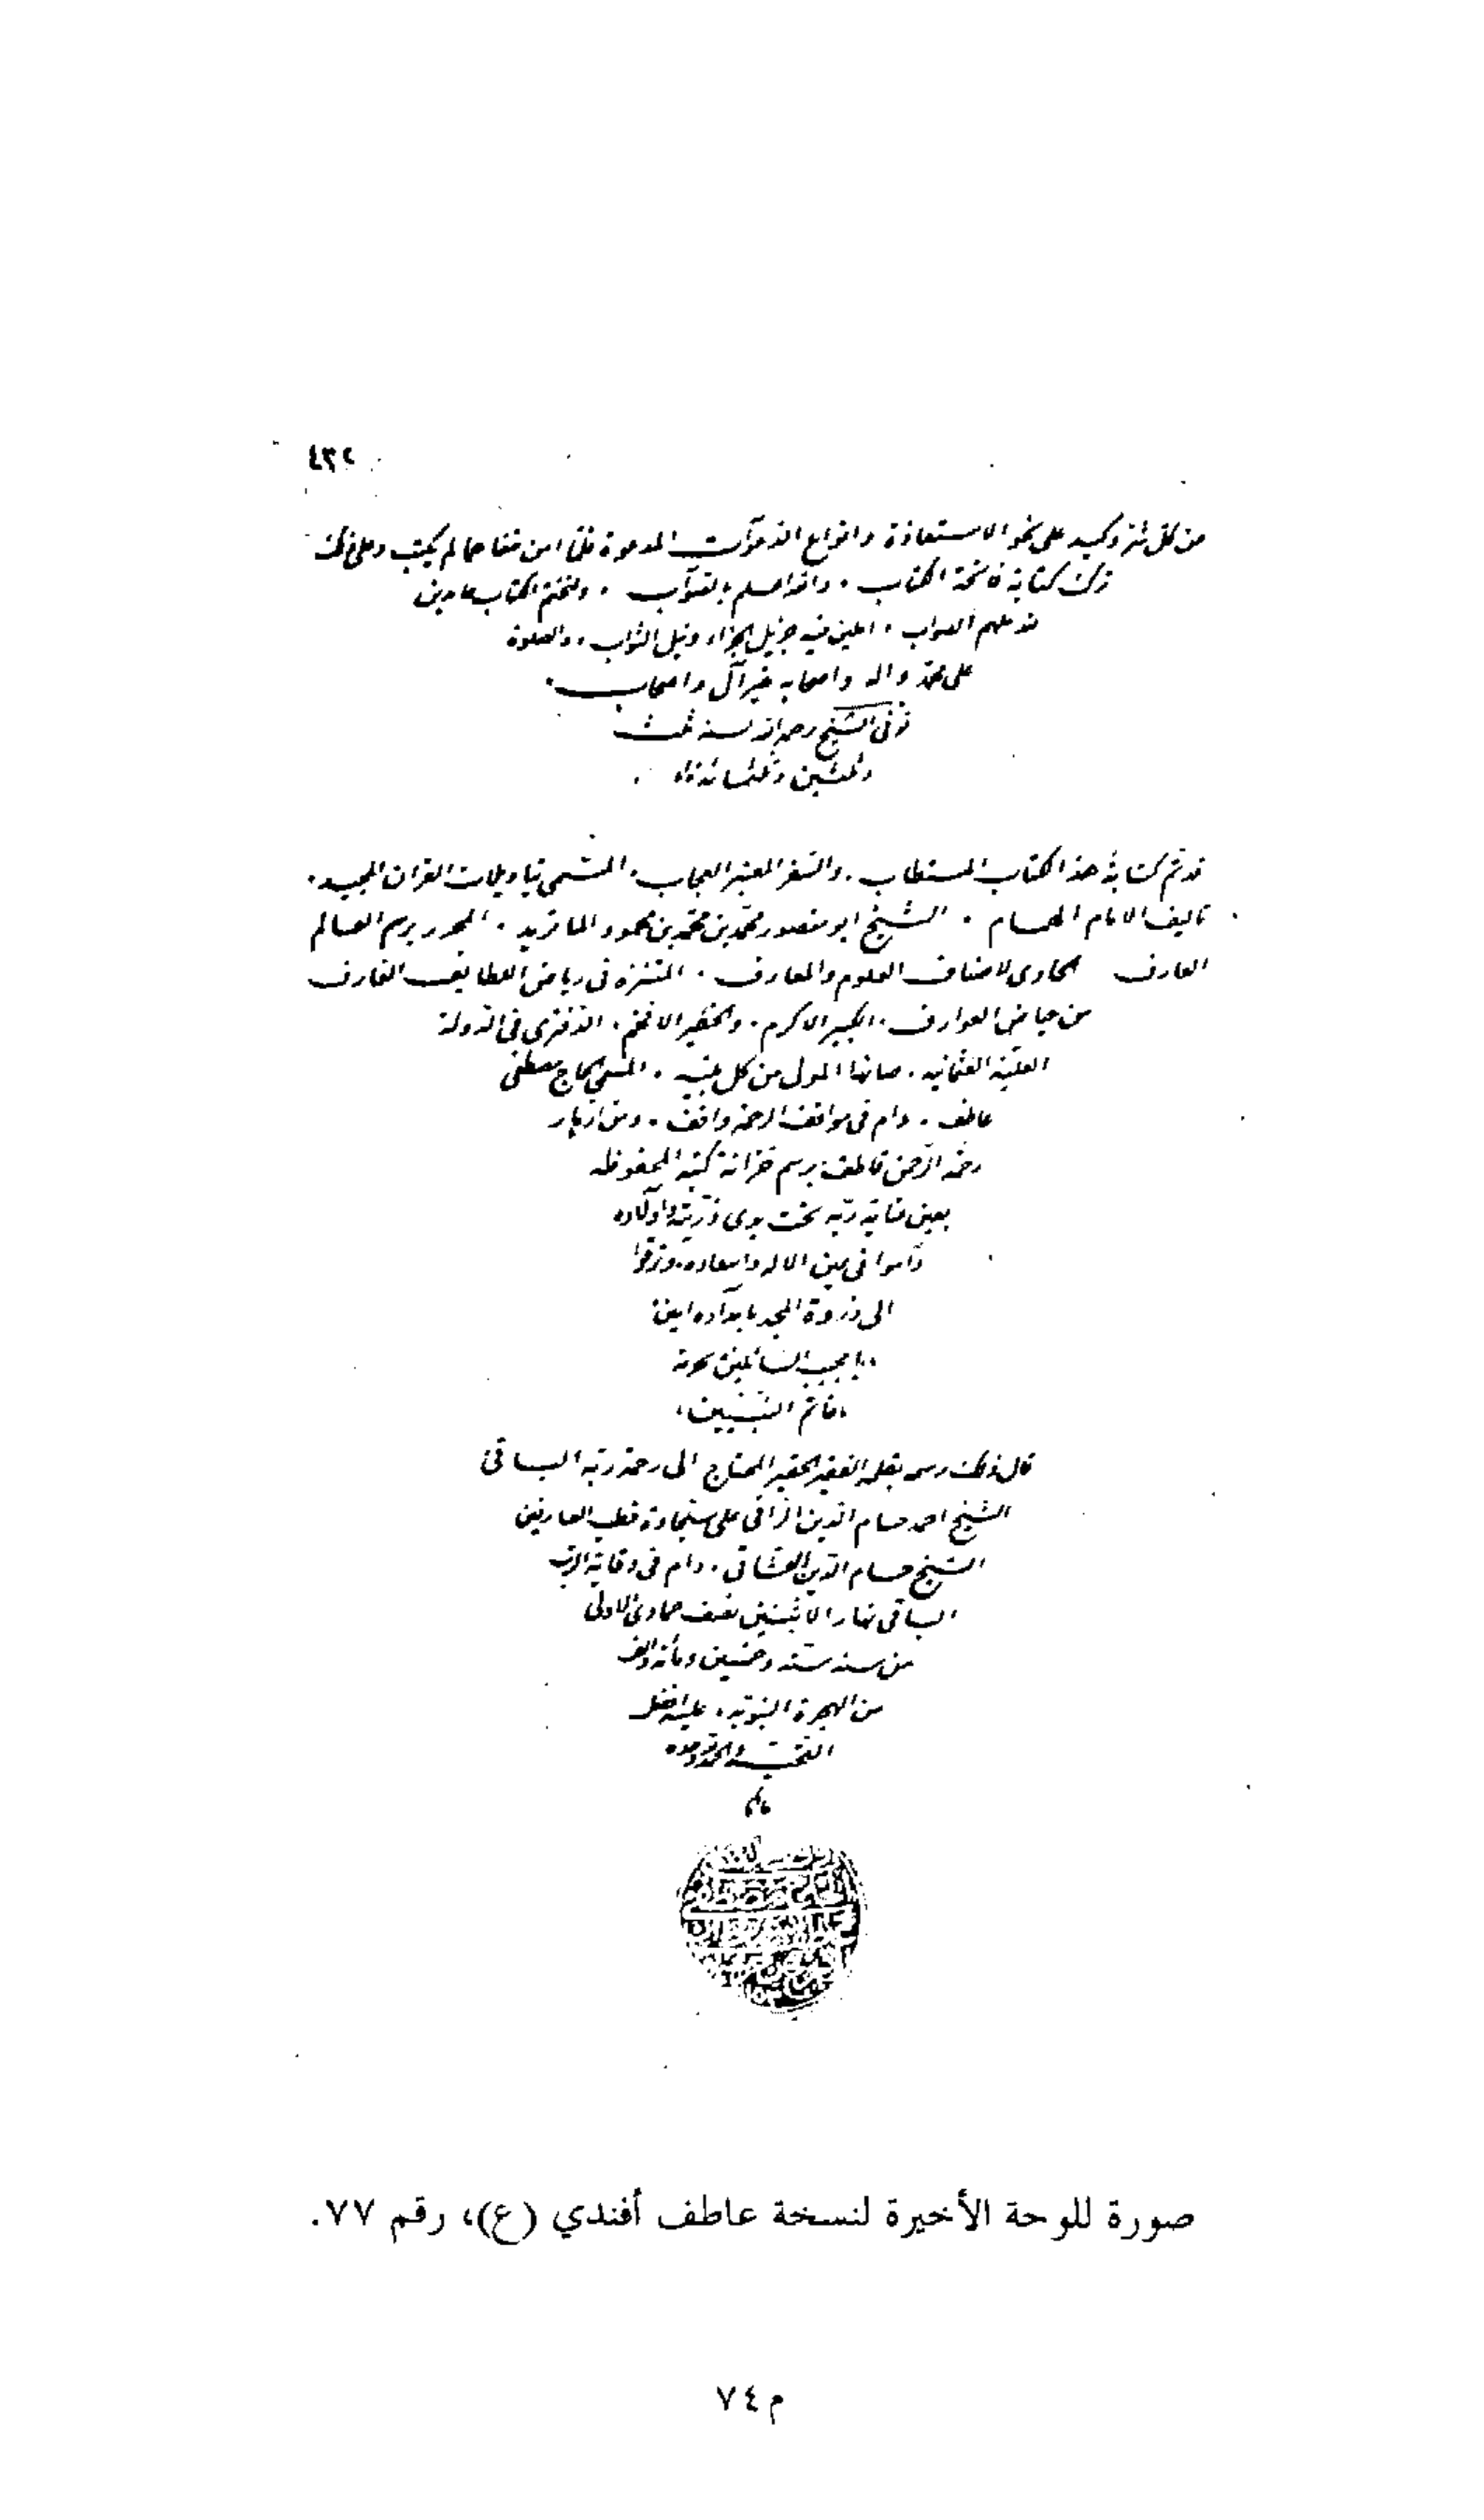 ٤٣٢
من كل شر وكيد على نحو الاستعاذة وانواع الدعوات المدعوة فلما امن منها حالم يكتب وعلى ذلك
ترك كتابة فاتحة الكتاب . والله اعلم بالصواب . ولنختم الكتاب حامدين
على محمد واله واصحابه خير آل واصحاب .
توفى الشيخ رحمه الله سنة ثلث
وثلثين وثلثمائة
قد تم كتابة هذا الكتاب المستطاب . والسفر المعتبر العجاب . المسمى بتاويلات القران المجيد .
تاليف الامام الهمام . الشيخ ابو منصور محمد بن محمد بن محمود الماتريد . المحرر برسم العالم
العارف الحاوى لاصناف العلوم والمعارف . المتنزه فى رياض اللطايف الغارف
من حياض العوارف . الكبير الاكرم . والخطير الافخم . الدفترى فى الدولة
العلية العثمانيه . صانها المولى من كل بليه . المسمى الحاج مصطفى
عاطف . دام فى مواقف الرحمة واقف . ومن ازهار
رحمة الرحمن قاطف . برسم خزانة كتبه المحفوظه
بعين عناية ربه تحت يدى ذريته واولاده
الى ذروة المجد بامداده امين
يا مجيب السائلين بحرمة
خاتم النبيين
قال ذلك ورسمه بقلمه الفقير الحقير المحتاج الى رحمة ربه الباقى
الشيخ احمد حسام الدين الراقى على سجادة قطب العارفين
الشيخ حسام الدين العشاقى . دام فى وقاية الرب
الباقى نهار الاثنين نصف جمادى الاولى
من سنه سته وخمسين ومائة والف
من الهجرة النبويه . عليه افضل
صورة للوحة الأخيرة لنسخة عاطف أفندي (ع)، رقم ٧٧.
م ٧٤